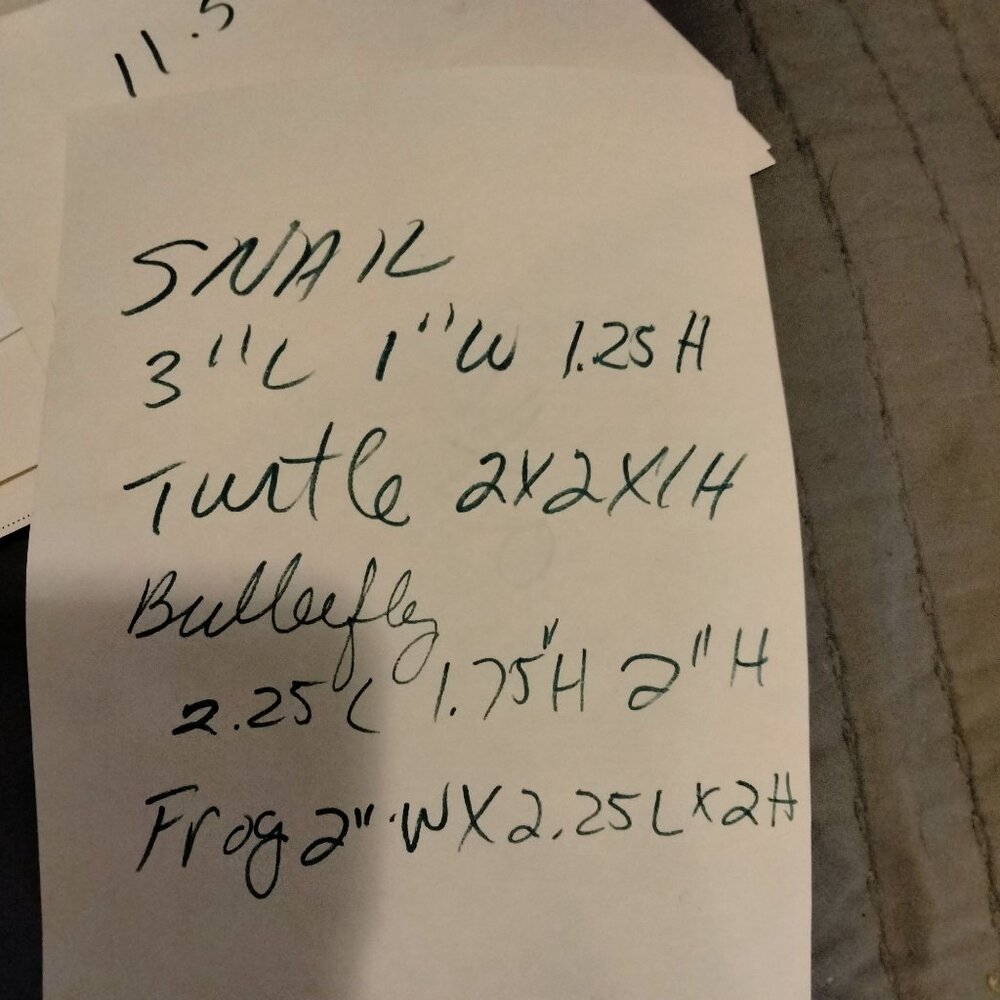 11.5
SNAIL
3"L 1"W 1.25H
Turtle 2X2X1H
Butterfly
2.25L 1.75"H 2"H
Frog 2" W X 2.25L X 2H